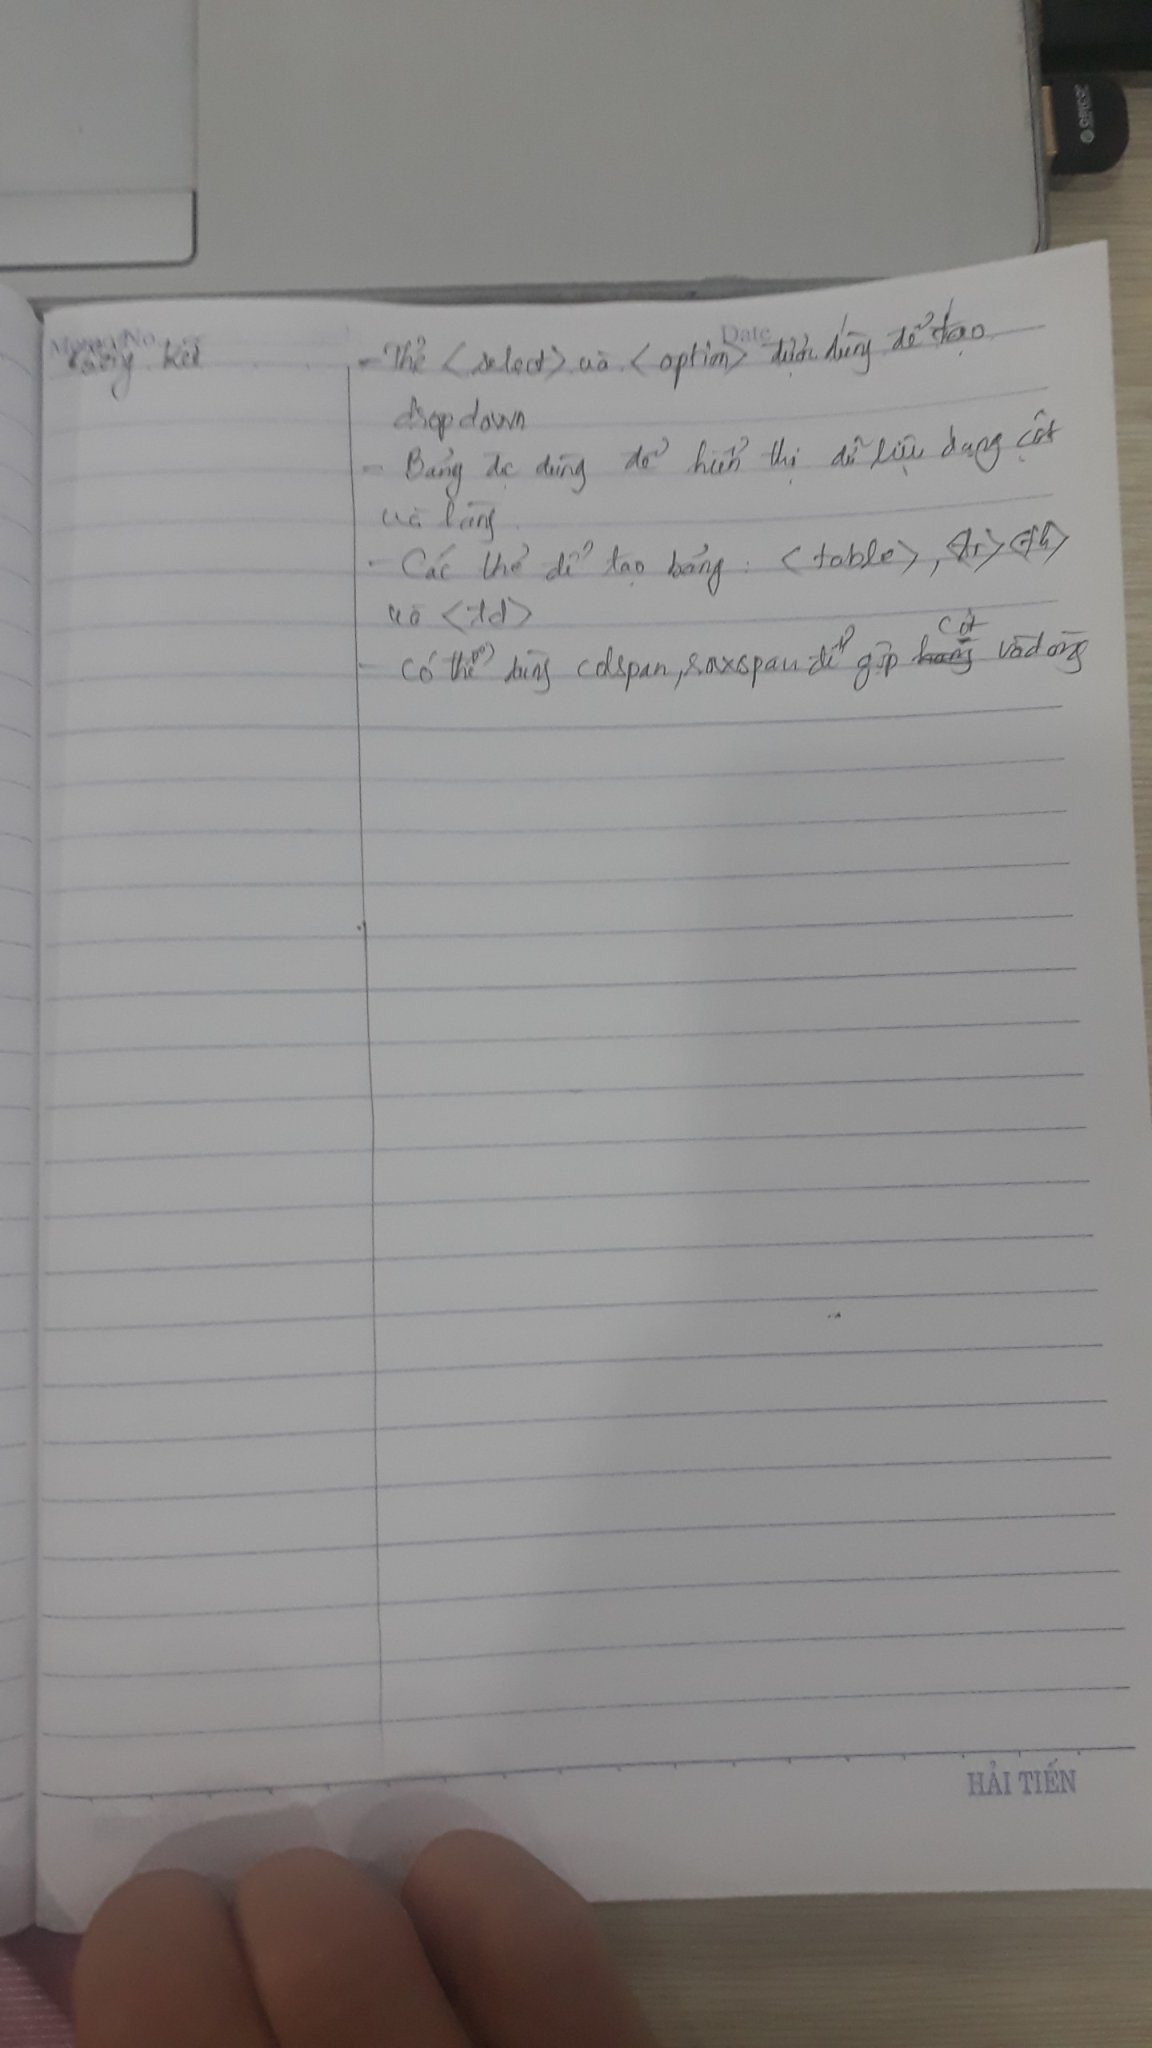 Tổng kết
Date
- Thẻ <select> và <option> được dùng để tạo
dropdown
- Bảng đc dùng để hiển thị dữ liệu dạng cột
và hàng
- Các thẻ để tạo bảng: <table>, <tr> <th>
và <td>
- Có thể dùng colspan, rowspan để gộp cột và dòng
HẢI TIẾN